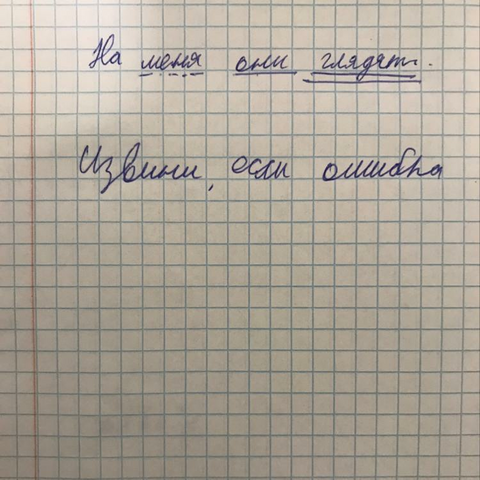 На меня они глядят.
Извини, если ошибка